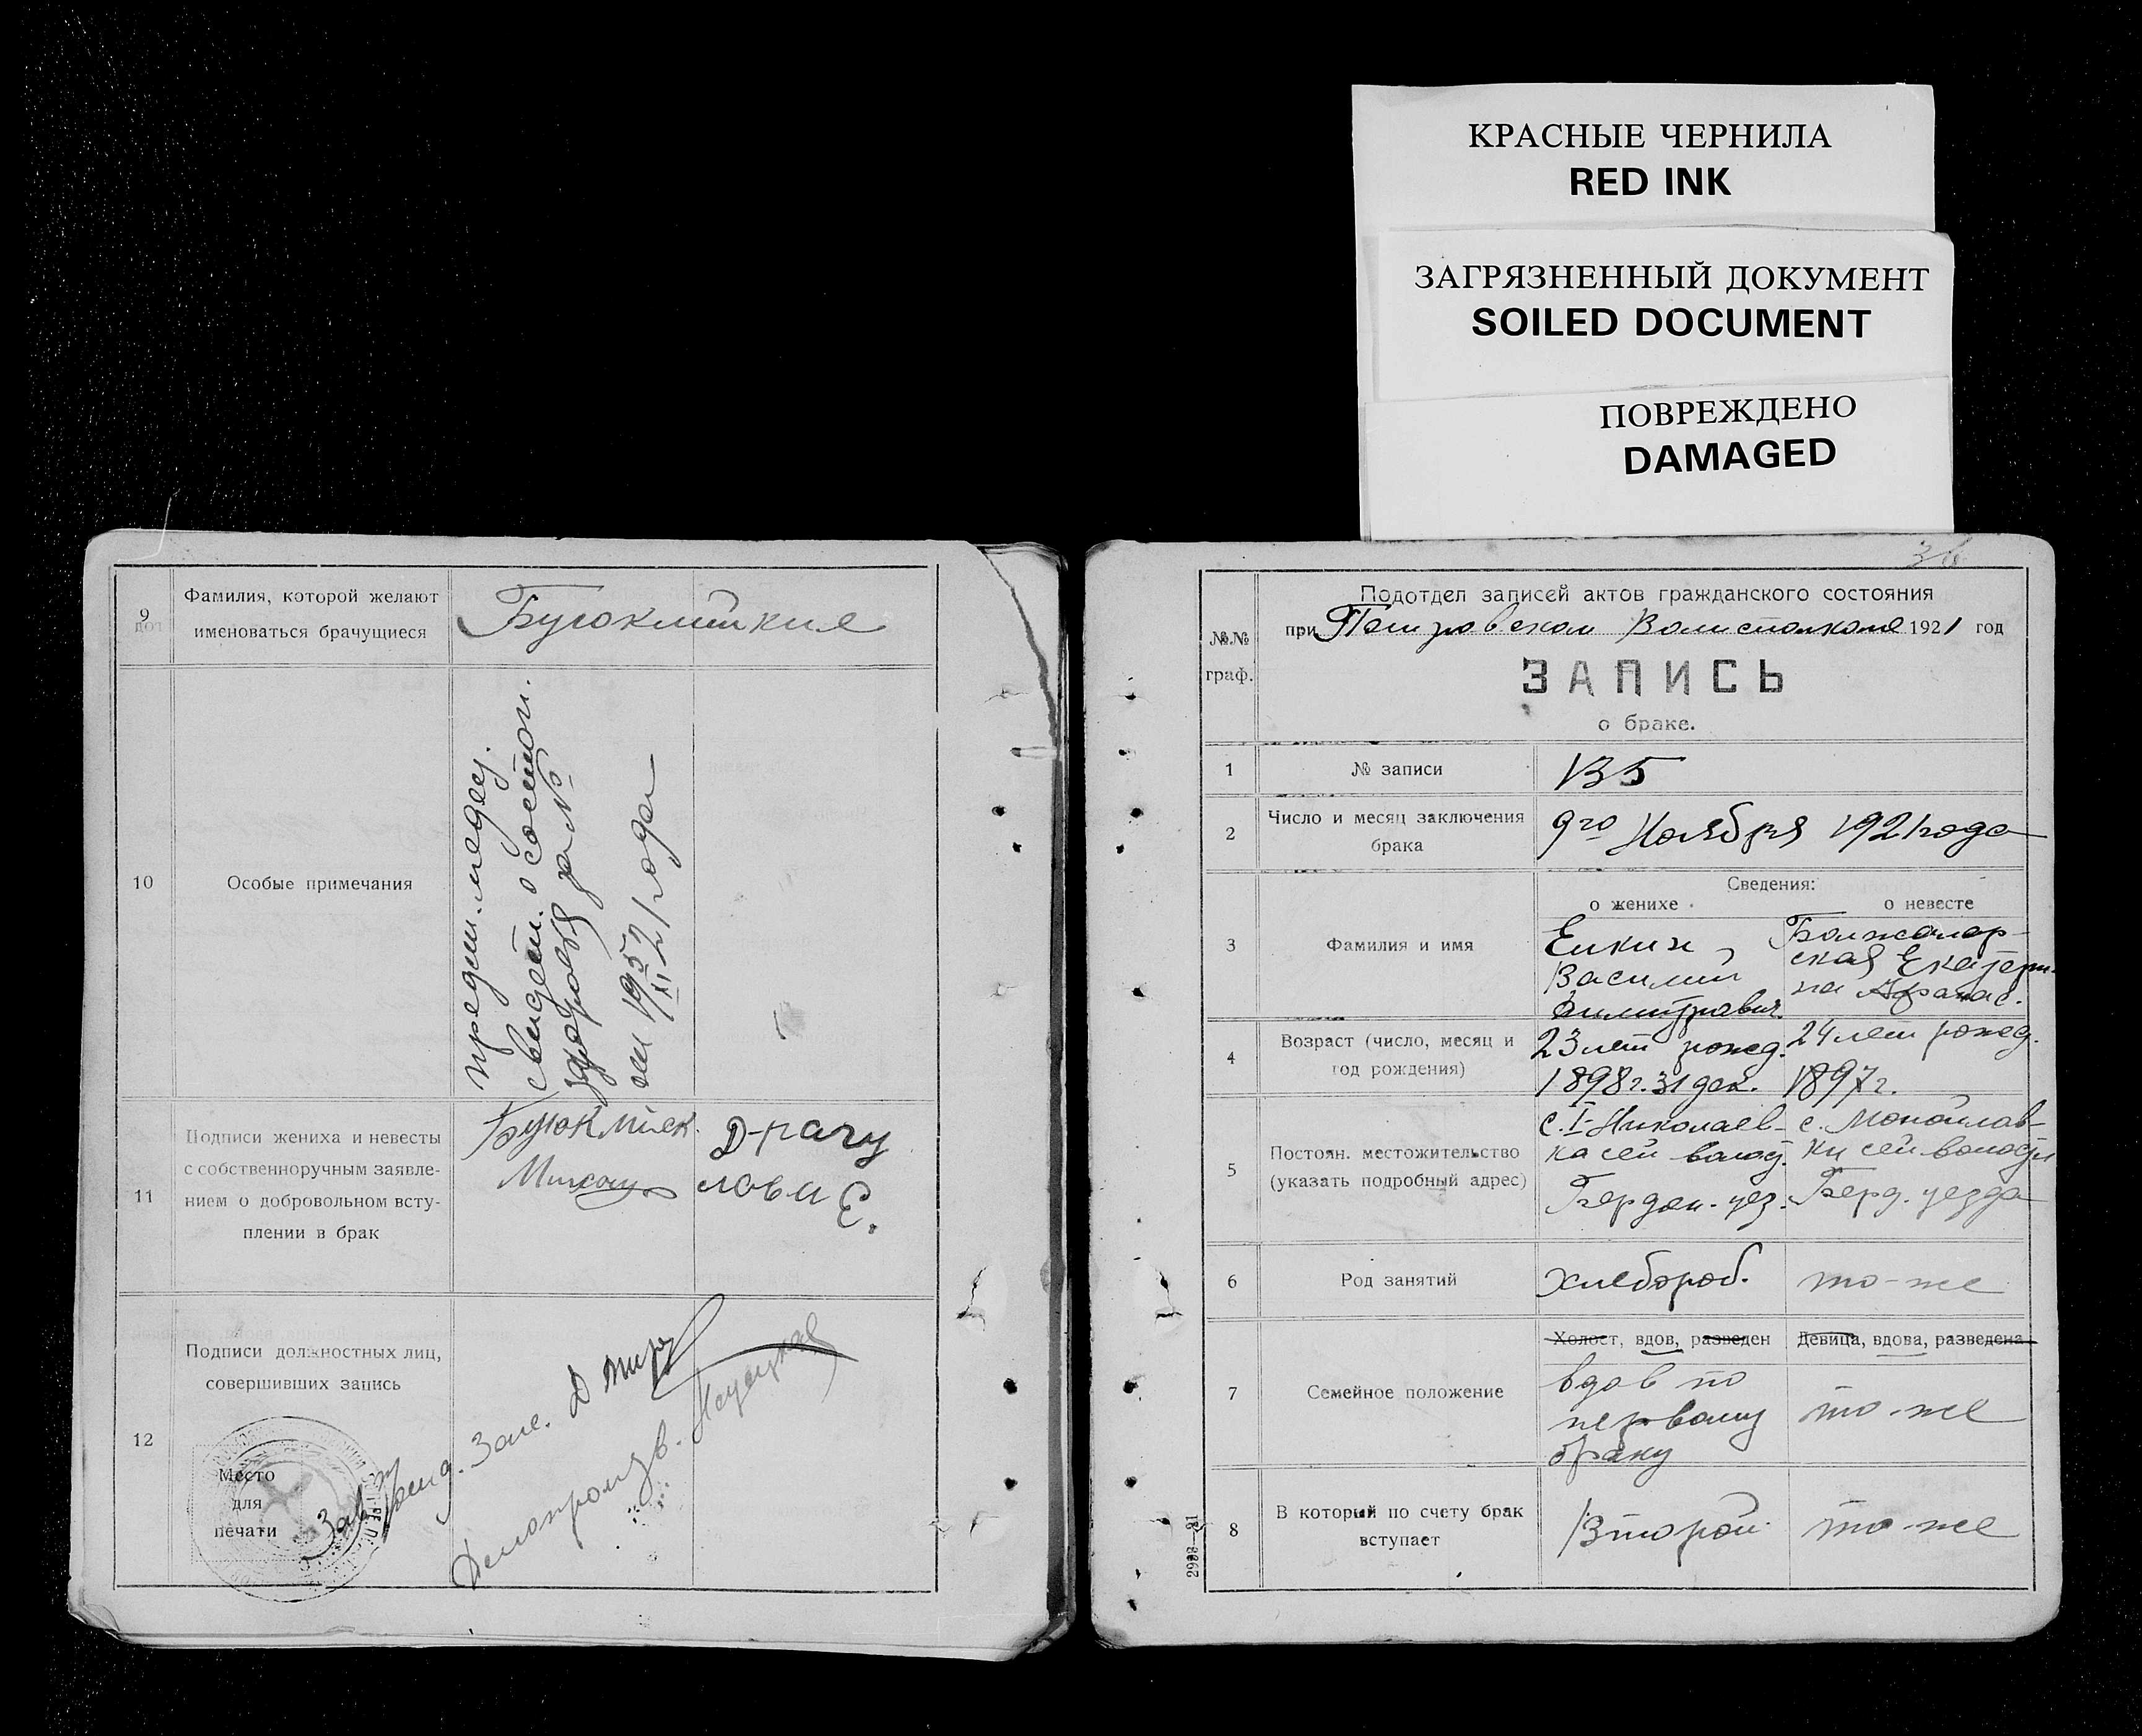 КРАСНЫЕ ЧЕРНИЛА
RED INK
ЗАГРЯЗНЕННЫЙ ДОКУМЕНТ
SOILED DOCUMENT
ПОВРЕЖДЕНО
DAMAGED
9
Фамилия, которой желают
именоваться брачущиеся
10
Особые примечания
свидет. о состоян.
здоровья за №
195
XI 21 года
11
Подписи жениха и невесты
с собственноручным заявле-
нием о добровольном всту-
плении в брак
Д-рагу
лова Е.
12
Подписи должностных лиц,
совершивших запись
Место
для
печати
Делопроизв.
№№
граф.
Подотдел записей актов гражданского состояния
при Волисполкоме 1921 год
ЗАПИСЬ
о браке.
1
№ записи
135
2
Число и месяц заключения
брака
9го Ноября 1921 года
3
Фамилия и имя
Сведения:
о женихе
о невесте
Елкин
Василий
Димитрович
ская Екатери-
на Афанас.
4
Возраст (число, месяц и
год рождения)
23 лет рожд.
1898 г. 31 дек.
24 лет рожд.
1897 г.
5
Постоян. местожительство
(указать подробный адрес)
с. I-Николаев-
ка сей волос.
Бердян. уез.
с.
ки сей волости
Берд. уезда
6
Род занятий
хлебороб.
то-же
7
Семейное положение
Холост, вдов, разведен
вдов по
первому
браку
Девица, вдова, разведена
то-же
8
В который по счету брак
вступает
Второй
то-же